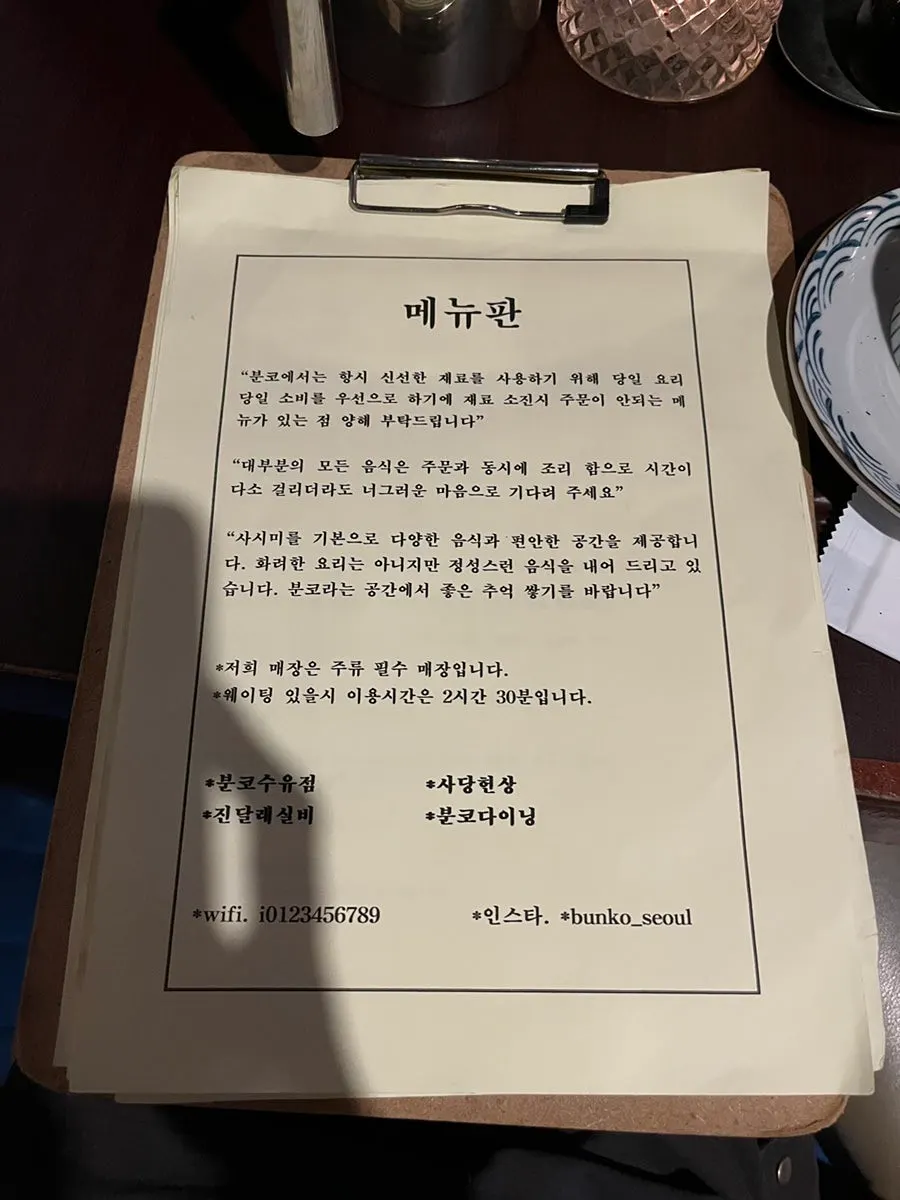 메뉴판
“분코에서는 항시 신선한 재료를 사용하기 위해 당일 요리
당일 소비를 우선으로 하기에 재료 소진시 주문이 안되는 메
뉴가 있는 점 양해 부탁드립니다”
“대부분의 모든 음식은 주문과 동시에 조리 함으로 시간이
다소 걸리더라도 너그러운 마음으로 기다려 주세요”
“사시미를 기본으로 다양한 음식과 편안한 공간을 제공합니
다. 화려한 요리는 아니지만 정성스런 음식을 내어 드리고 있
습니다. 분코라는 공간에서 좋은 추억 쌓기를 바랍니다”
*저희 매장은 주류 필수 매장입니다.
*웨이팅 있을시 이용시간은 2시간 30분입니다.
*분코수유점 *사당현상
*진달래실비 *분코다이닝
*wifi. i0123456789 *인스타. *bunko_seoul